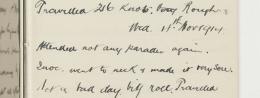 Travelled 216 knots. Very Rough.
Wed. 11th Nov 1914
Attended not any parades again.
Inoc. went to neck & made it very sore.
Not a bad day, big roll. Travelled